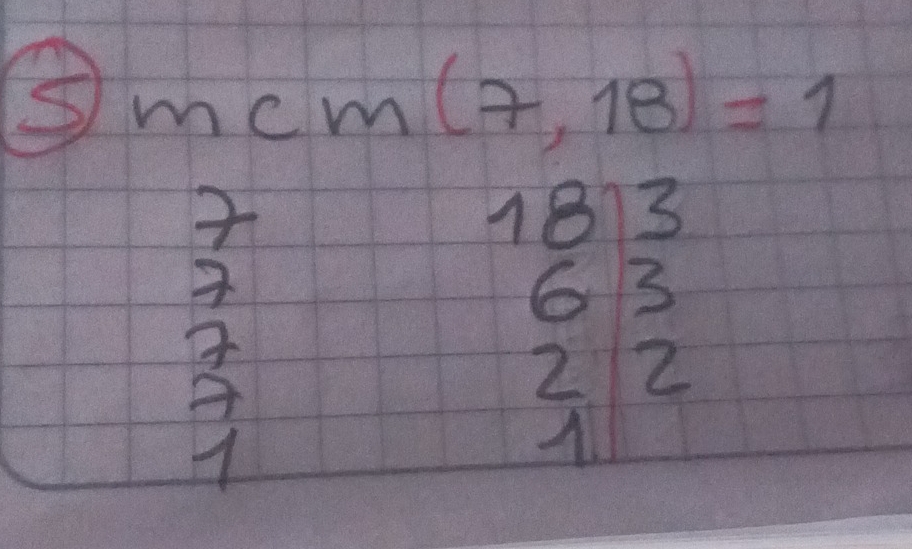 5 mcm (7, 18) = 1
7 18 | 3
7 6 | 3
7 2 | 2
7
1 1